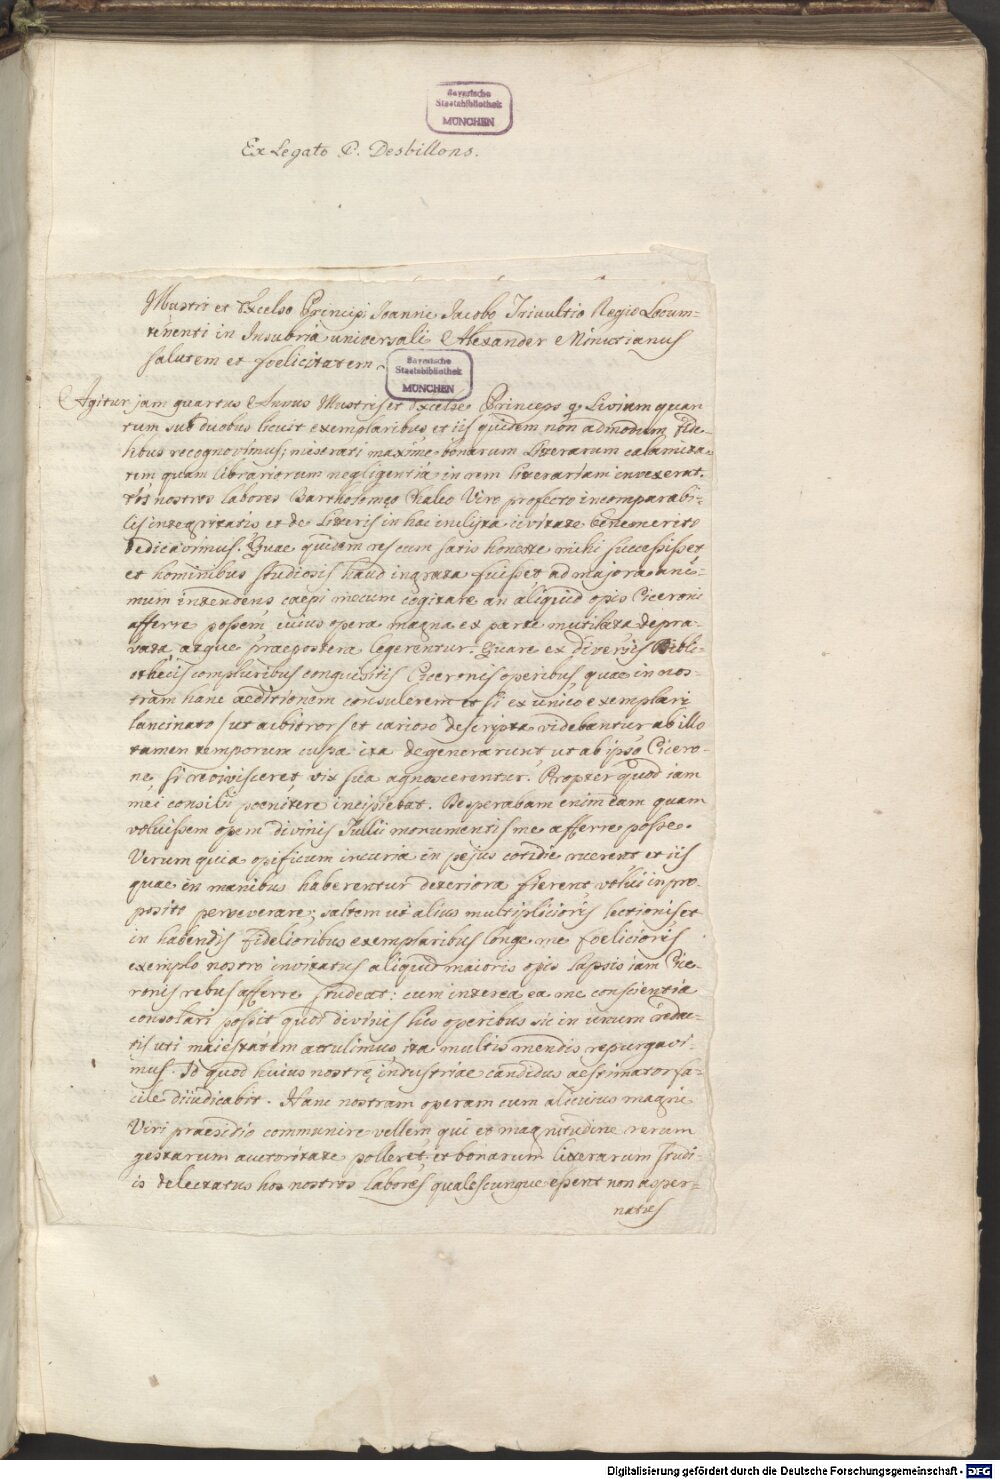 Bayerische
Staatsbibliothek
MÜNCHEN
Ex Legato P. Desbillons.
Illustri et Excelso Principi Joanni Jacobo Trivultio Regio Locum-
tenenti in Insubria universali Alexander Minutianus
salutem et foelicitatem.
Bayerische
Staatsbibliothek
MÜNCHEN
Agitur jam quartus Annus Illustris et Excelse Princeps q Livium quan
tum sub duobus licuit exemplaribus et iis quidem non admodum fide-
libus recognovimus; miserati maxime bonarum Literarum calamita-
tem quam librariorum negligentia in rem literariam invexerat.
eos nostros labores Bartholomeo Chalco Viro profecto incomparabi-
lis integritatis et de Literis in hac inclyta civitate benemerito
dedicavimus. Quae quidem res cum satis honeste mihi successisset
et hominibus studiosis haud ingrata fuisset, ad majora ani-
mum intendens caepi mecum cogitare an aliquid opis Ciceroni
afferre possem, cuius opera magna ex parte mutilata depra-
vata, atque praepostera legerentur. Quare ex diversis Bibli-
othecis compluribus conquisitis Ciceronis operibus, quae in nos-
tram hanc aeditionem consulerem et si ex unico exemplari
lancinato sut arbitrors et carioso descripta videbantur ab illo
tamen temporum culpa ita degenerarunt ut ab ipso Cicero-
ne, si revivisceret, vix sua agnoscerentur. Propter quod iam
mei consilii poenitere incipiebat. Desperabam enim eam quam
voluissem opem divinis Tullii monumentis me afferre posse.
Verum quia opificum incuria in pejus cotidie ruerent et iis
quae in manibus haberentur deteriora fierent, volui in pro-
posito perseverare; saltem ut alius multiplicioris lectionis et
in habendis fidelioribus exemplaribus longe me foelicioris
exemplo nostro invitatus aliquid maioris opis lapsis iam Cice-
ronis rebus afferre studeat: cum interea ea me conscientia
consolari possit quod divinis his operibus sic in unum redac-
tis uti maiestatem attulimus, ita multis mendis repurgavi-
mus. Id quod huius nostrę industriae candidus aestimator fa-
cile diiudicabit. Hanc nostram operam cum alicuius magni
Viri praesidio communire vellem qui et magnitudine rerum
gestarum auctoritate polleret, et bonarum literarum studi-
is delectatus hos nostros labores qualescunque essent non asper-
natus
Digitalisierung gefördert durch die Deutsche Forschungsgemeinschaft - DFG